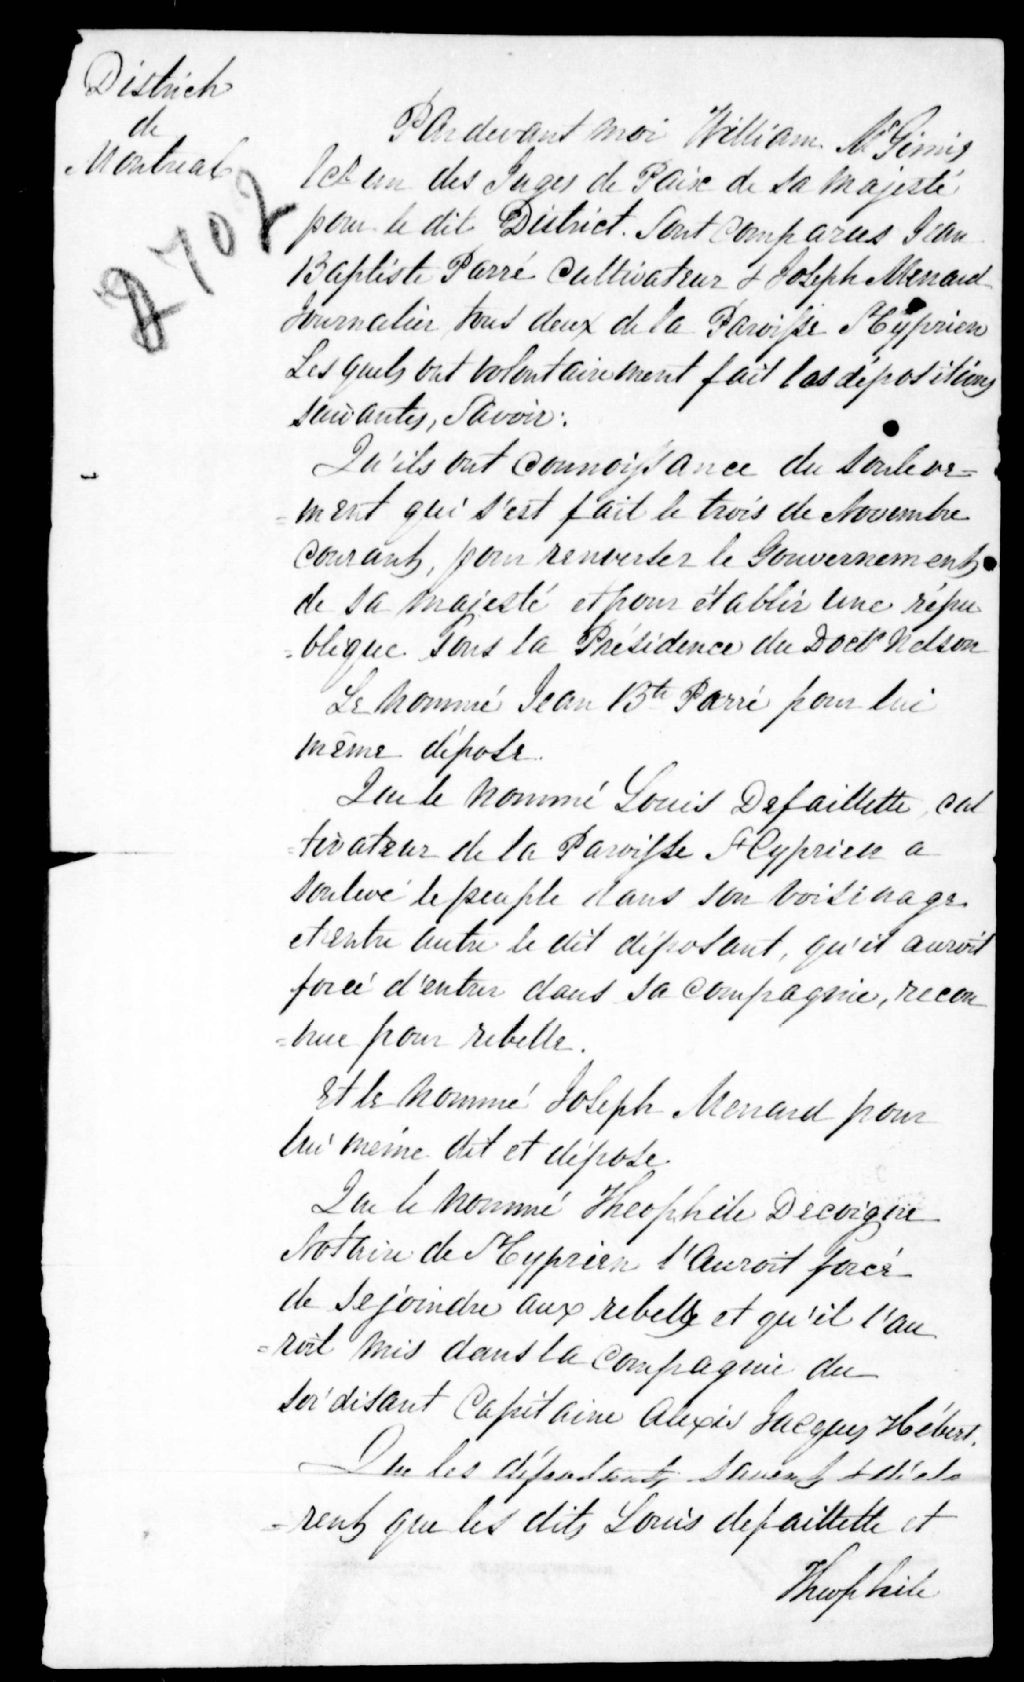 District
de
Montreal
2702
Pardevant moi William McGinnis
des Juges de Paix de Sa Majesté
pour le dit District. Sont Comparus Jean
Baptiste Parré Cultivateur & Joseph Menard
Journalier tous deux de la Paroisse St Cyprien
Lesquels ont volontairement fait les dépositions
suivantes, Savoir:
Qu'ils ont connoissance du souleve=
=ment qui s'est fait le trois de Novembre
Courant, pour renverser le Gouvernement
de Sa Majesté et pour établir une répu
=blique sous la Présidence du Doctr Nelson
Le nommé Jean Bte Parré pour lui
même dépose.
Que le nommé Louis Defaillette, cul
=tivateur de la Paroisse St Cyprien a
soulevé le peuple dans son voisinage
et entre autre le dit déposant, qu'il auroit
forcé d'entrer dans sa compagnie, recon
=nue pour rebelle.
Et le nommé Joseph Menard pour
lui même dit et dépose
Que le nommé Theophile Decoigne
Notaire de St Cyprien l'auroit forcé
de se joindre aux rebelles et qu'il l'au
=roit mis dans la Compagnie du
soi disant Capitaine Alexis Jacques Hébert.
Que les déposants savent & décla
=rent que les dits Louis defaillette et
Theophile